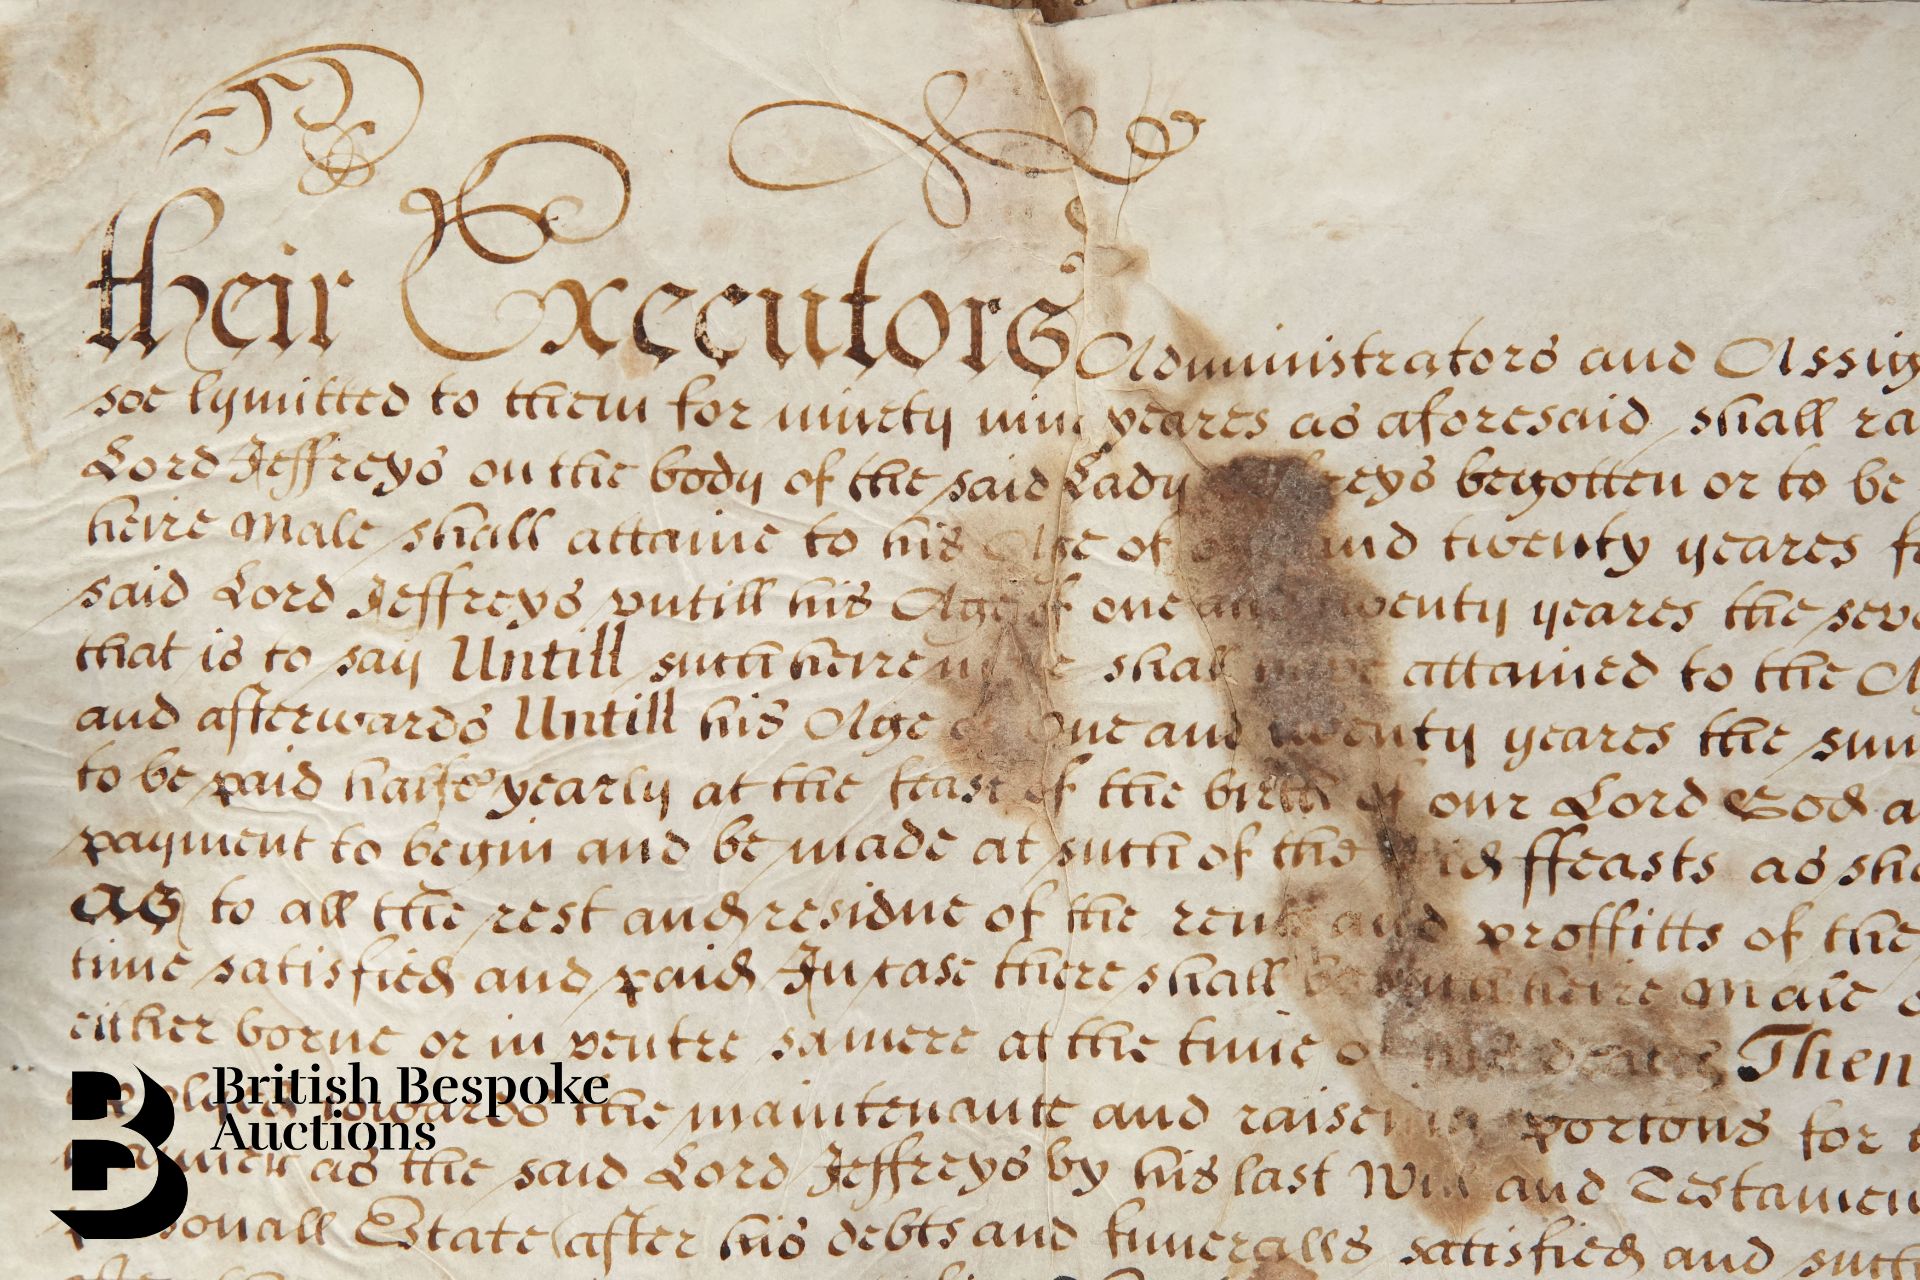 their Executors Administrators and Assig
soe lymitted to them for ninety nine yeares as aforesaid shall ra
Lord Jeffreys on the body of the said Lady reys begotten or to be
heire Male shall attaine to his Age of and twenty yeares
said Lord Jeffreys vntill his Age of one and twenty yeares the seve
that is to say Untill such heire male shall have attained to the A
and afterwards Untill his Age of One and twenty yeares the sum
to be paid halfe yearly at the feast of the birth of our Lord God a
payment to begin and be made at such of the said ffeasts as sha
As to all the rest and residue of the rents and proffitts of the
time satisfied and paid In case there shall be such heire Male o
either borne or in ventre samere at the time of his decease Then
towards the maintenance and raiseing portons for
manner as the said Lord Jeffreys by his last Will and Testamen
personall Estate (after his debts and funeralls satisfied and such
British Bespoke
Auctions